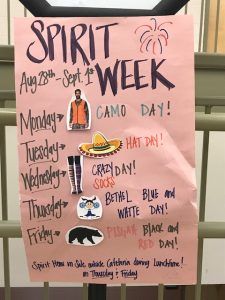 SPIRIT
Aug 28th - Sept. 1st WEEK
Monday → CAMO DAY!
Tuesday → HAT DAY!
Wednesday → CRAZY DAY!
SOCKS
Thursday → BETHEL BLUE and
WHITE DAY!
Friday → PISGAH BLACK and
RED DAY!
Spirit Items on Sale outside Cafeteria during Lunchtime!
on Thursday & Friday